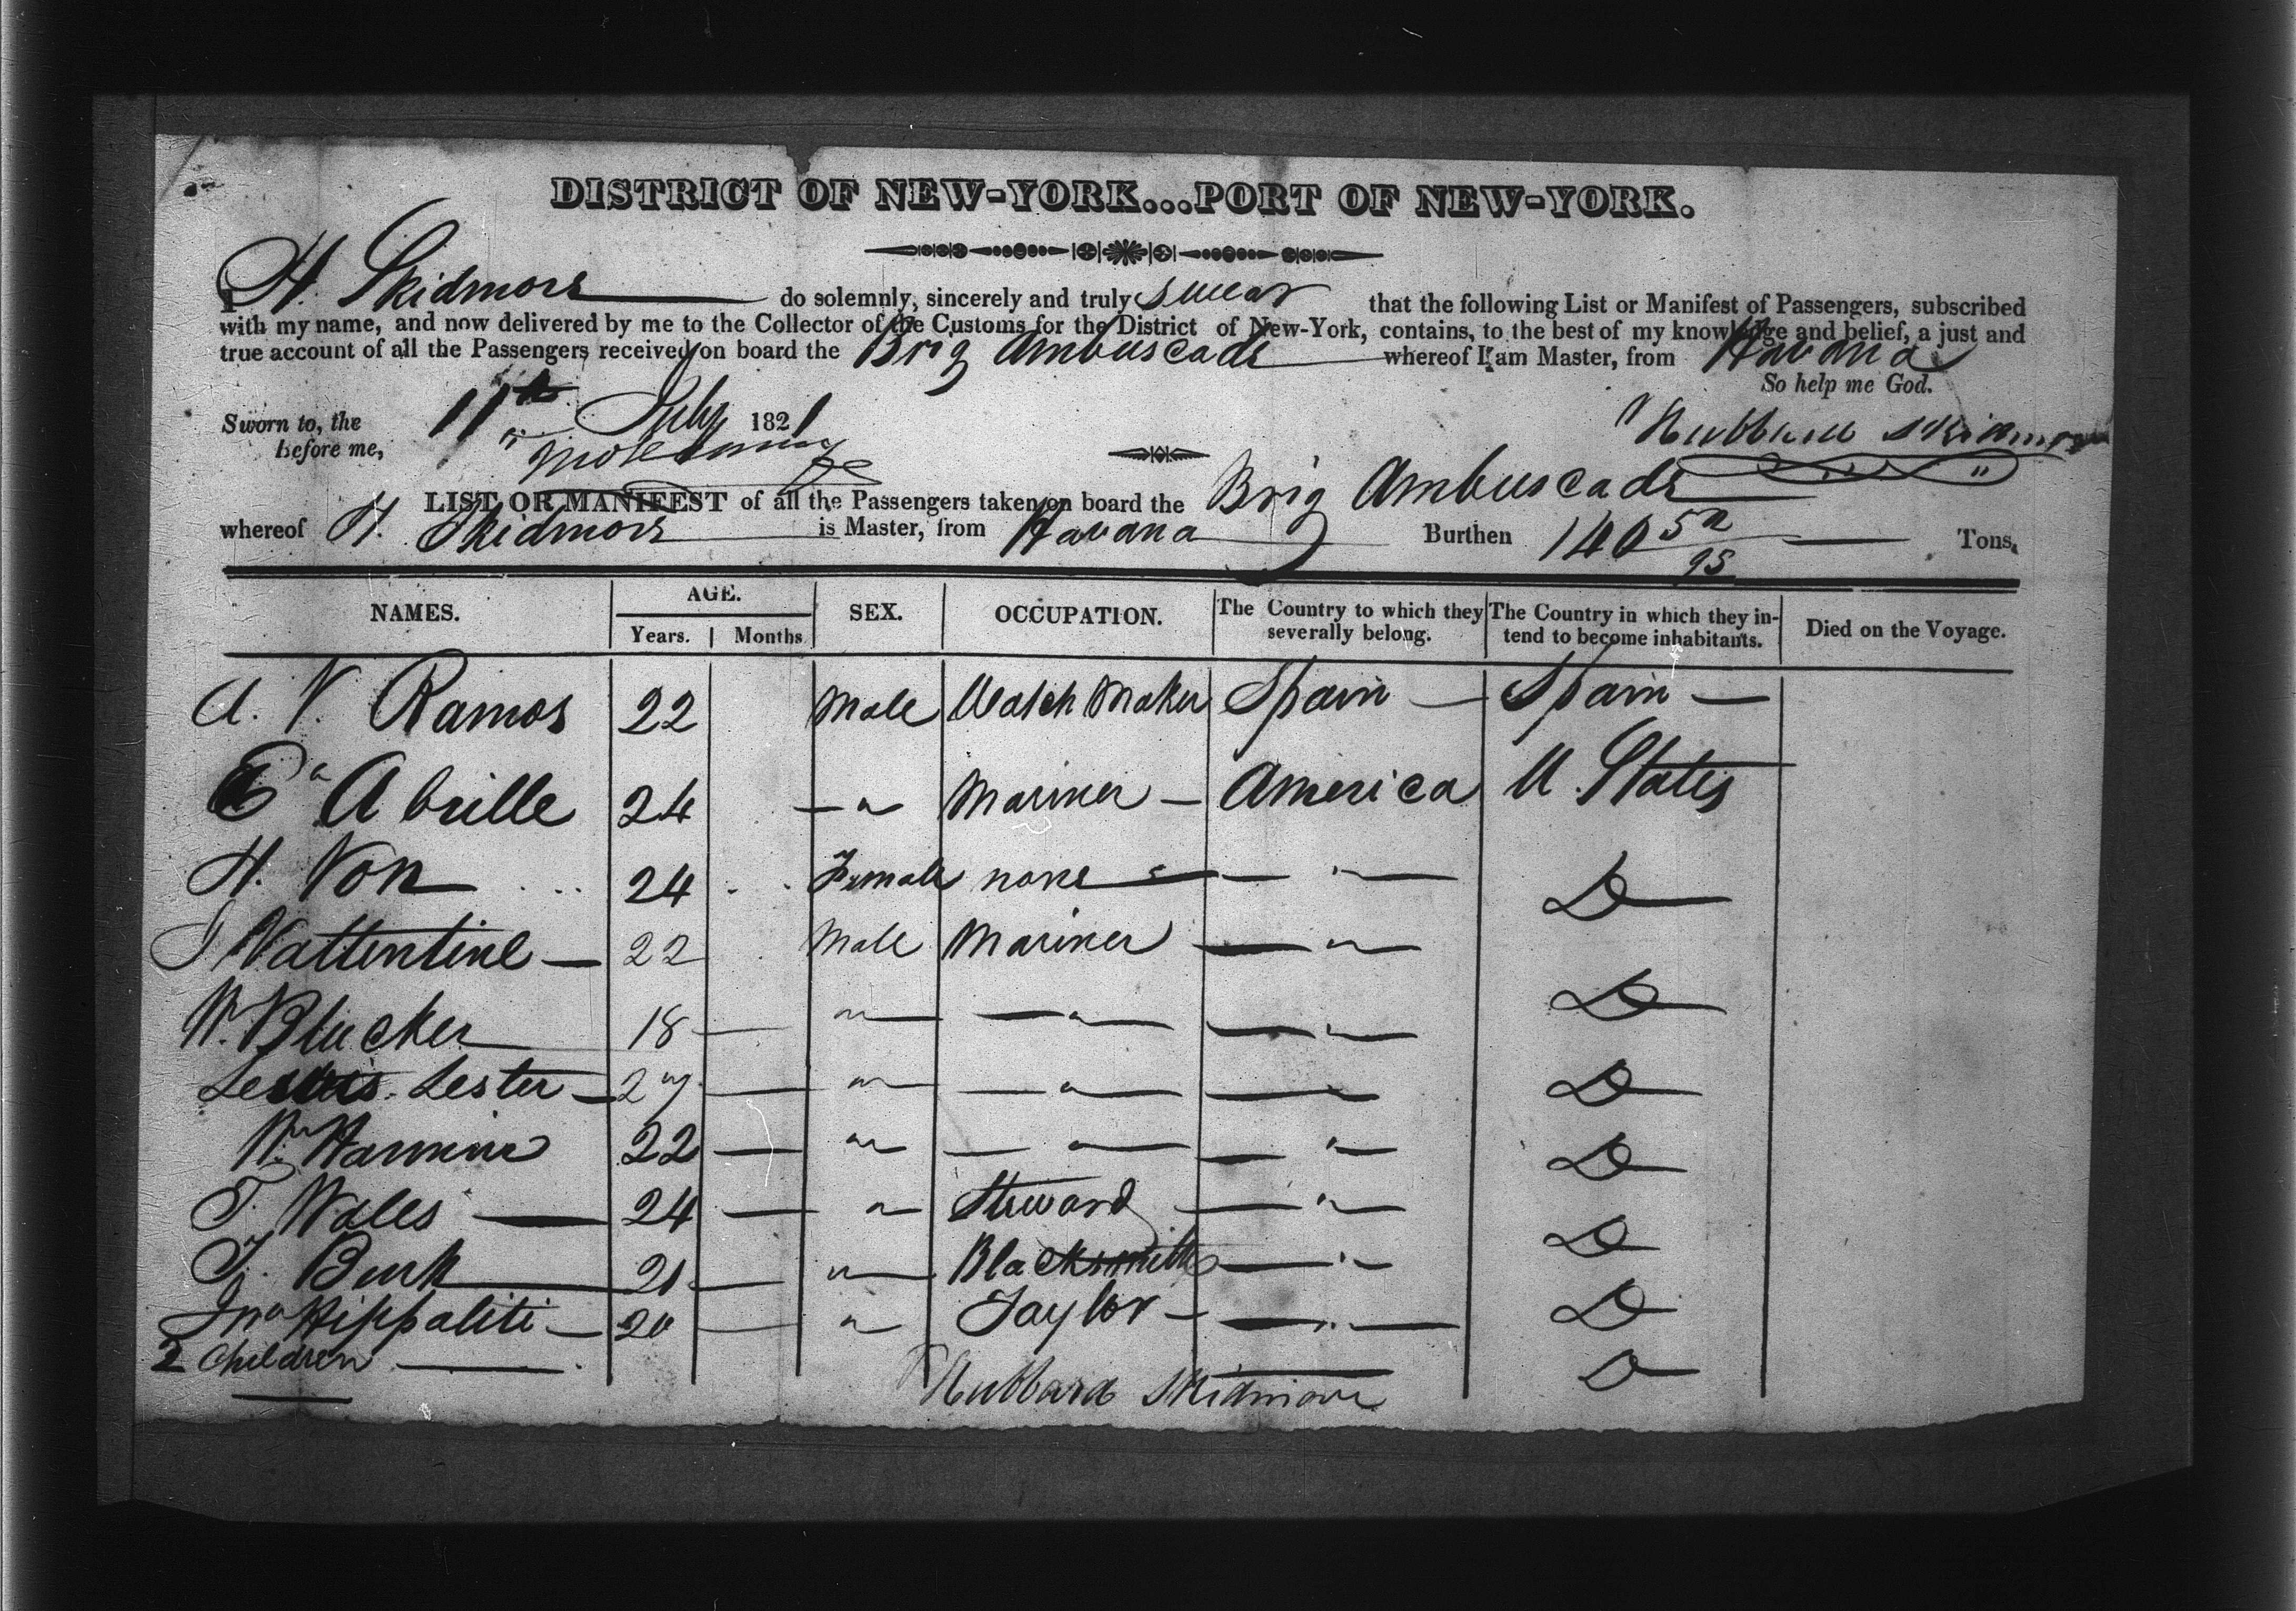 DISTRICT OF NEW-YORK...PORT OF NEW-YORK.
I H. Skidmore do solemnly, sincerely and truly swear that the following List or Manifest of Passengers, subscribed
with my name, and now delivered by me to the Collector of the Customs for the District of New-York, contains, to the best of my knowledge and belief, a just and
true account of all the Passengers received on board the Brig Ambuscade whereof I am Master, from Havana
So help me God.
Sworn to, the 11th July 1821
before me,
Hubbard Skidmore
LIST OR MANIFEST of all the Passengers taken on board the Brig Ambuscade
whereof H. Skidmore is Master, from Havana Burthen 140 52/95 Tons.
NAMES. AGE. SEX. OCCUPATION. The Country to which they severally belong. The Country in which they intend to become inhabitants. Died on the Voyage.
Years. Months.
A. V. Ramos 22 Male Watch Maker Spain — Spain —
E Abrille 24 — " Mariner — America U. States
H. Von 24 Female none — " — D
J Vattentine — 22 Male Mariner — "
W. Blucker 18 — " — " — — " D
Lester — 27 — " — — " — — D
Wm 22 — " — — " — — " — D
T. Wales — 24 — " Steward — " —
T. Burk 21 — " — Blacksmith — " — D
Jno Hippaliti — 20 — " Taylor — — " — D
2 Children — D
Hubbard Skidmore